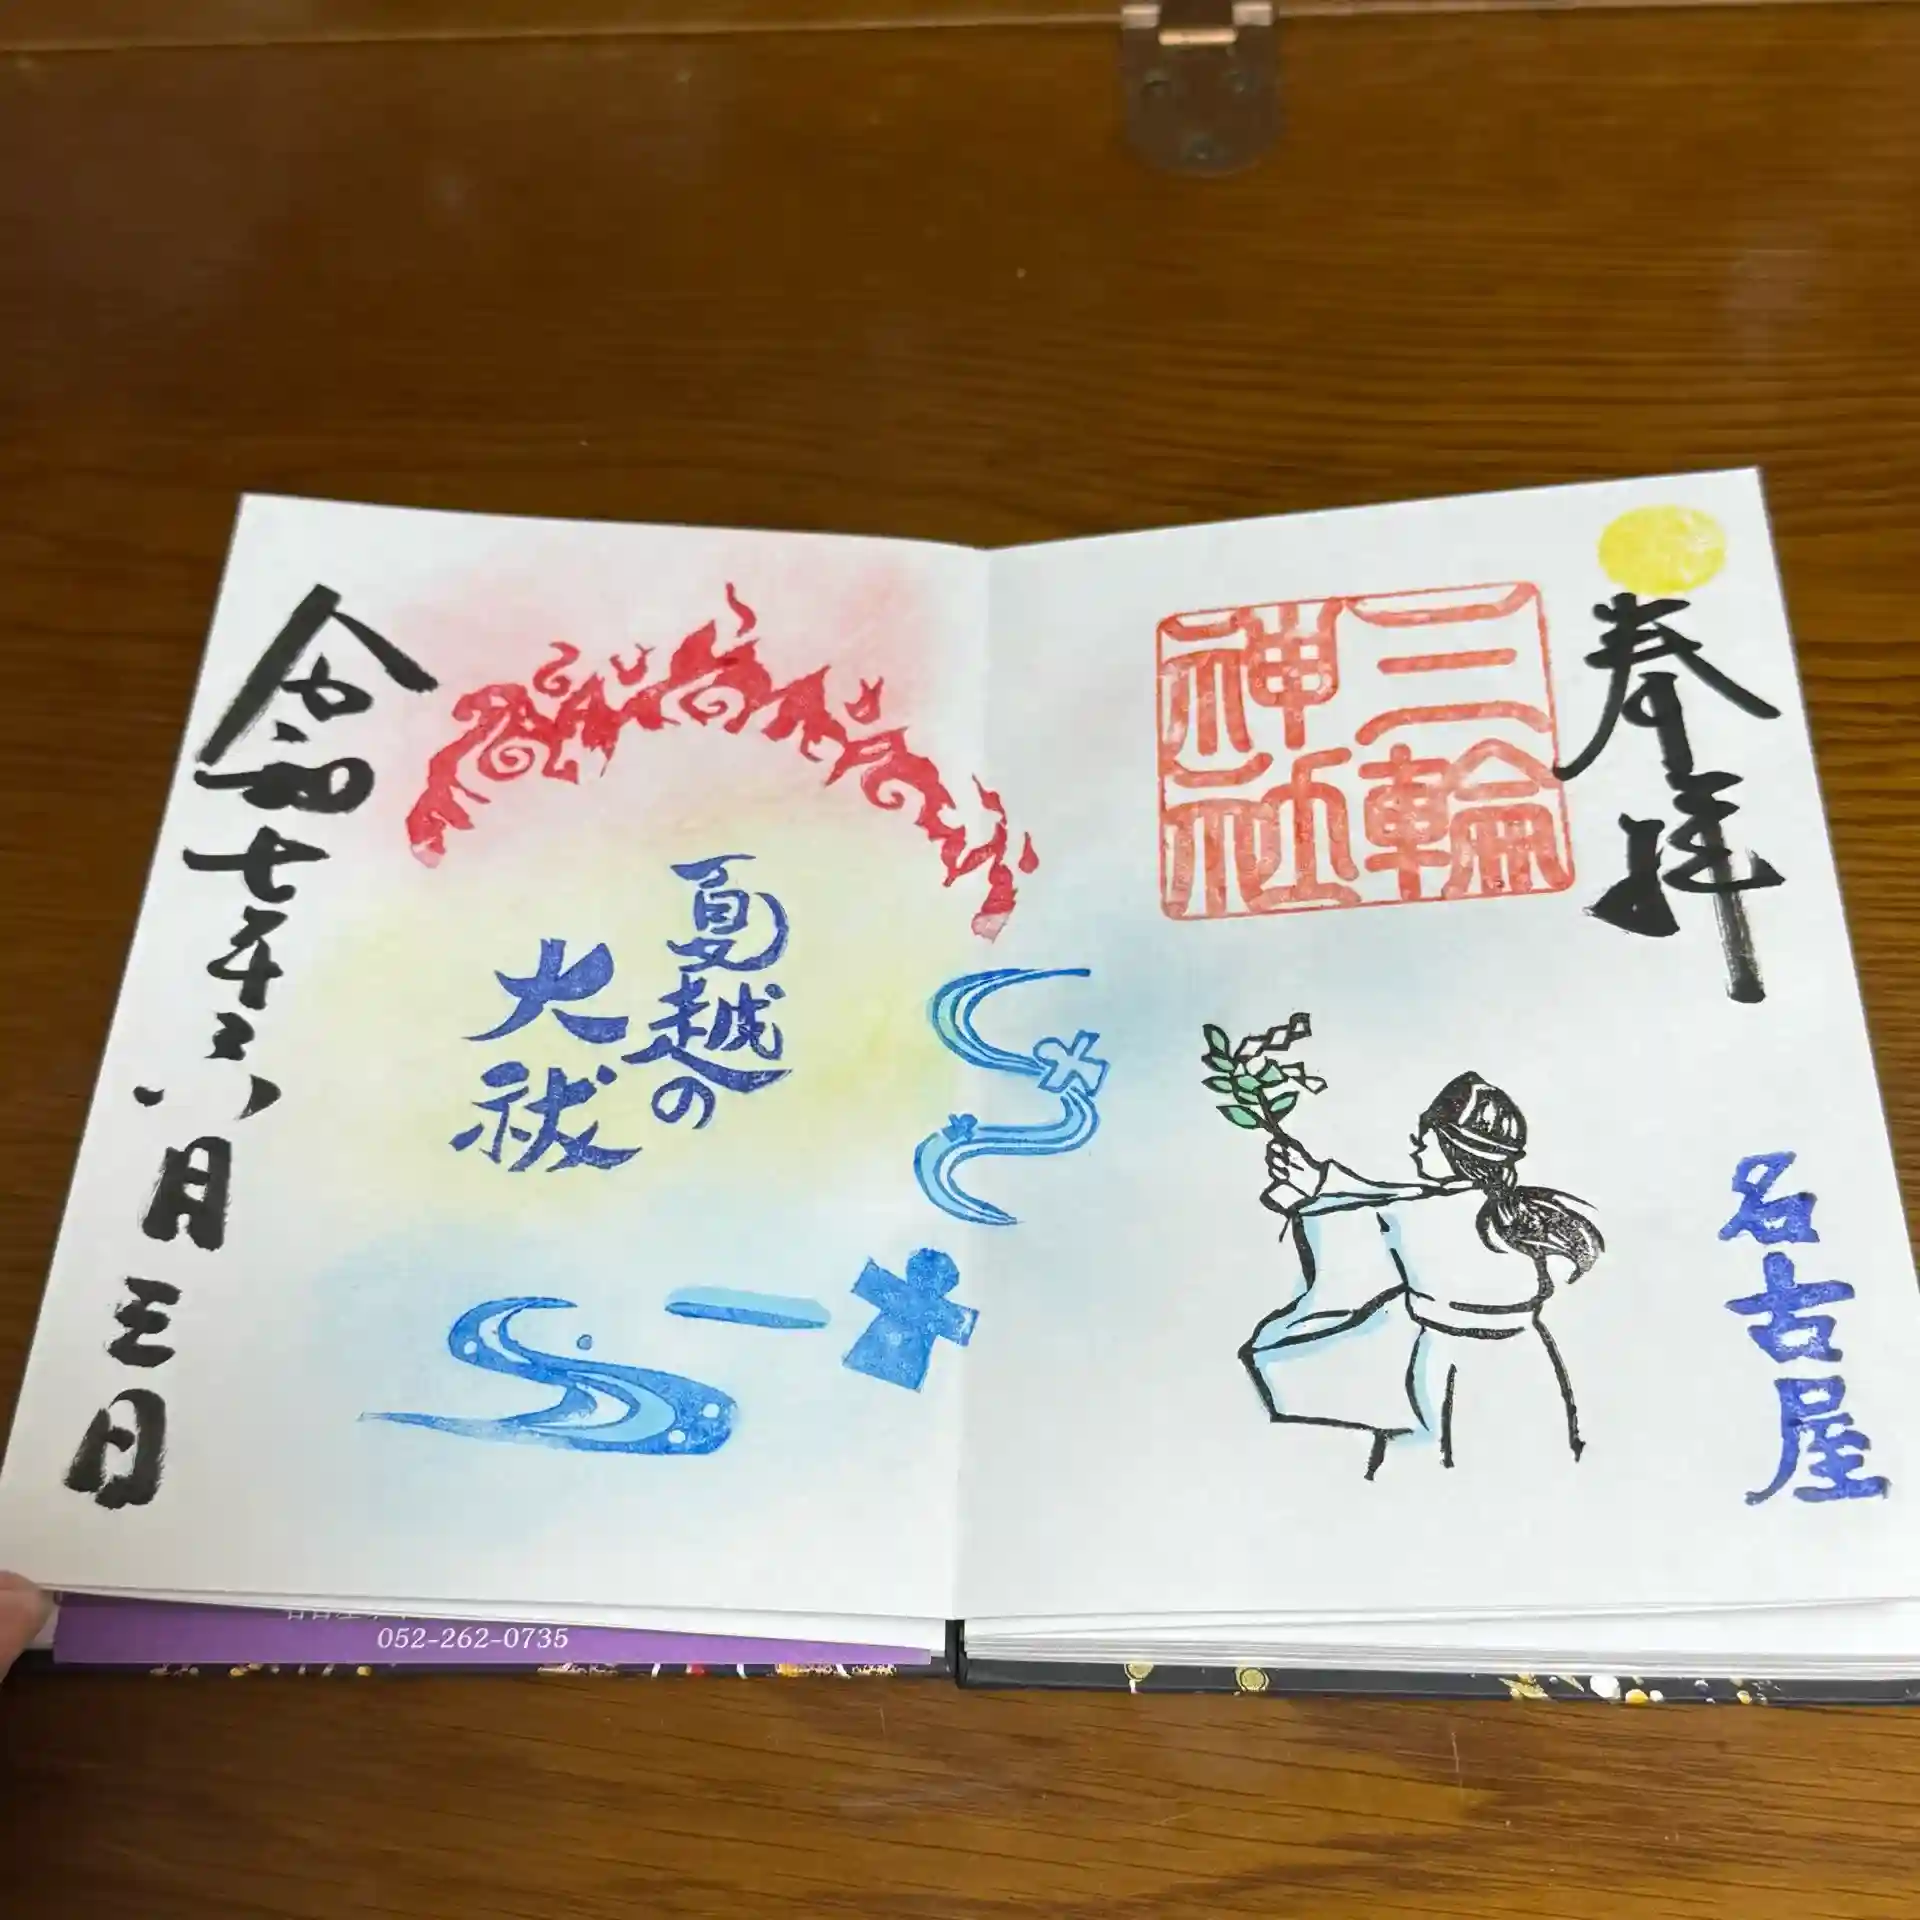 奉拝
三輪
神社
名古屋
夏越の
大祓
令和七年六月三日
052-262-0735